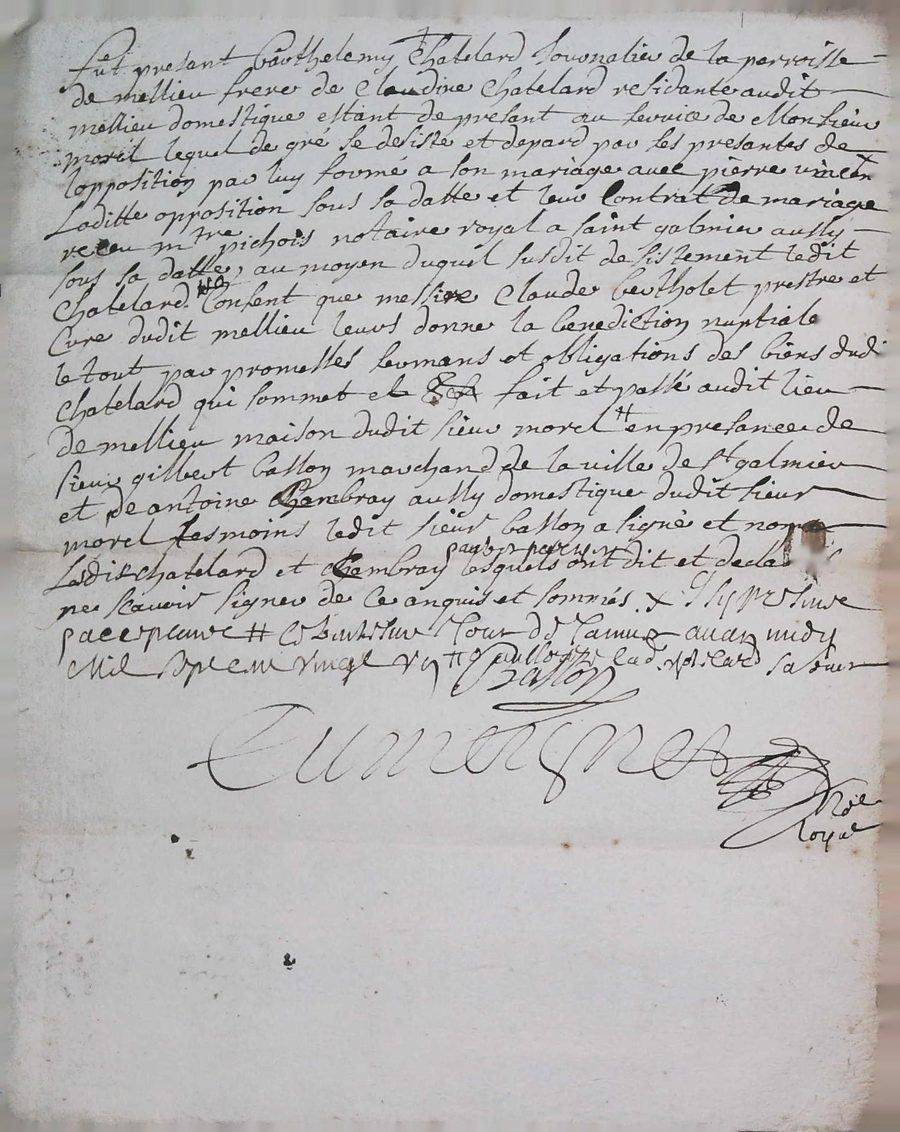 fut presant Berthelemy Chatelard Journalier de la parroisse
de mellieu frere de Claudine Chatelard residante audit
mellieu domestique estant de presant au service de Monsieur
morel lequel de gré se desiste et depard par ses presantes de
lopposition par luy formé a son mariage avec pierre vincen
Laditte opposition sous sa datte et leur Contrat de mariage
receu mtre pichois notaire royal a saint galmier aussy
sous sa datte, au moyen duquel susdit desistement ledit
Chatelard Consent que messire Claude bertholet prestre et
Cure dudit mellieu leurs donne la benediction nuptiale
le tout par promesses sermans et obligations des biens dudi
Chatelard qui sommet et fait et passé audit lieu
de mellieu maison dudit sieur morel # en presance de
sieur gilbert ballon marchand de la ville de st galmier
et de antoine Chambray aussy domestique dudit sieur
morel tesmoins ledit sieur ballon a signé et non
Lesdis chatelard et Chambray lesquels ont dit et decla
ne scavoir signer de ce anquis et sommés x
# Jour de avant midy
Mil sept cent vingt
Ballon
Nore
Royal